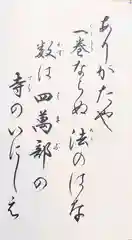 ありがたや
一巻ならぬ法のはな
数は四萬部の
寺のいにしへ